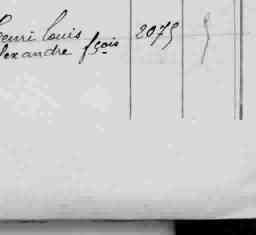 Henri Louis
Alexandre fçois 2075